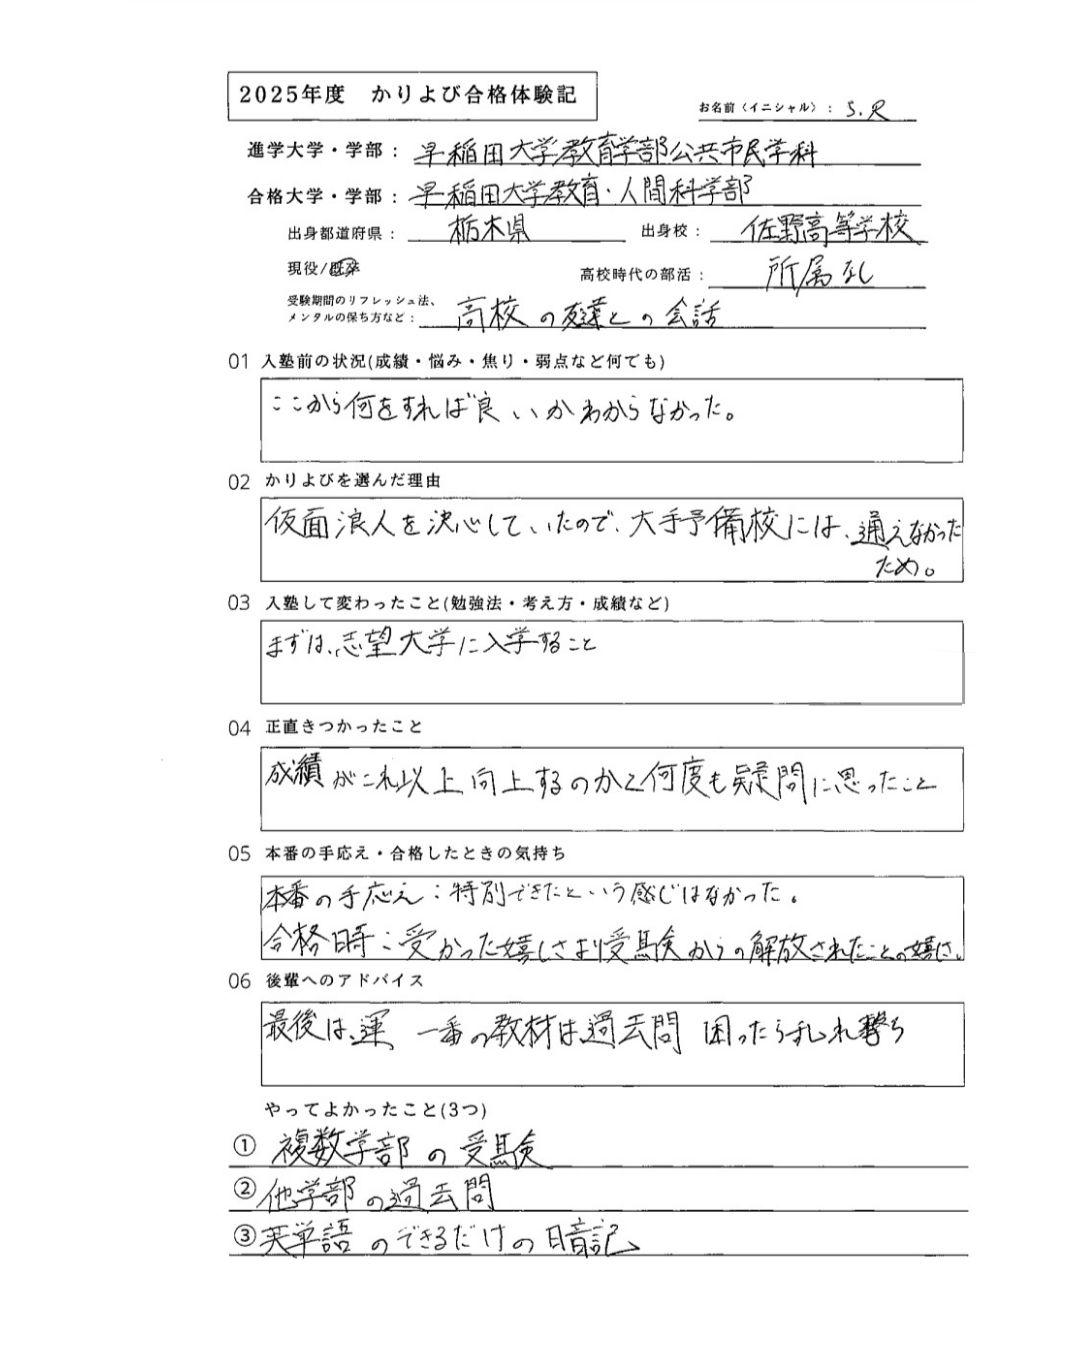 2025年度 かりよび合格体験記
お名前(イニシャル): S.R
進学大学・学部: 早稲田大学教育学部公共市民学科
合格大学・学部: 早稲田大学教育・人間科学部
出身都道府県: 栃木県 出身校: 佐野高等学校
現役/既卒 高校時代の部活: 所属なし
受験期間のリフレッシュ法、
メンタルの保ち方など: 高校の友達との会話
01 入塾前の状況(成績・悩み・焦り・弱点など何でも)
ここから何をすれば良いかわからなかった。
02 かりよびを選んだ理由
仮面浪人を決心していたので、大手予備校には、通えなかった
ため。
03 入塾して変わったこと(勉強法・考え方・成績など)
まずは、志望大学に入学すること
04 正直きつかったこと
成績がこれ以上向上するのかと何度も疑問に思ったこと
05 本番の手応え・合格したときの気持ち
本番の手応え:特別できたという感じはなかった。
合格時:受かった嬉しさより受験からの解放されたことの嬉しさ。
06 後輩へのアドバイス
最後は、運 一番の教材は過去問 困ったら乱れ撃ち
やってよかったこと(3つ)
① 複数学部の受験
② 他学部の過去問
③ 英単語のできるだけの暗記